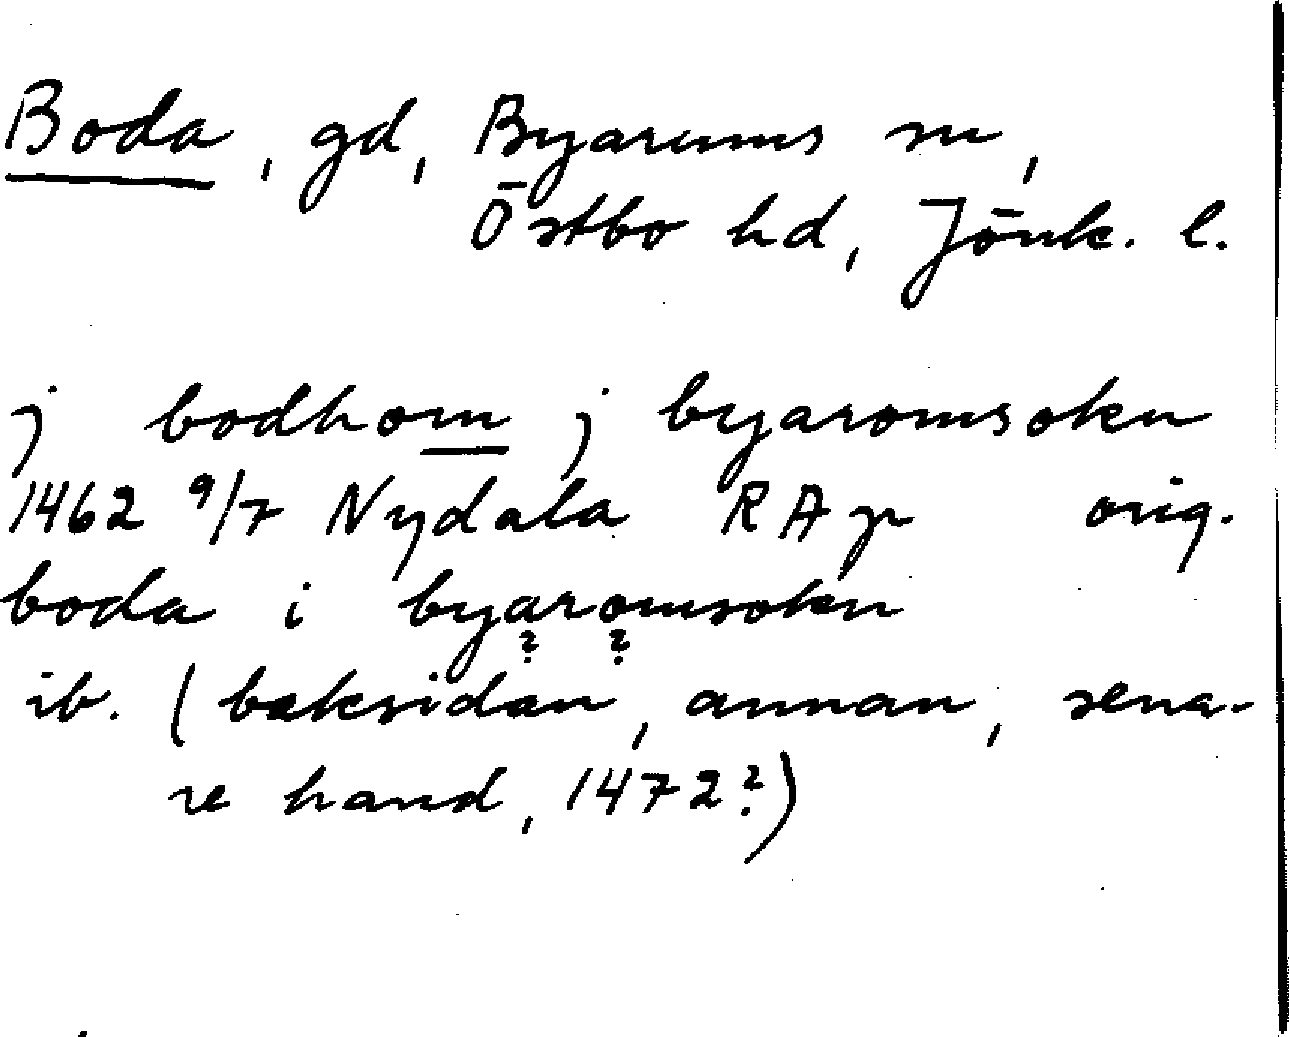 Boda, gd, Byarums sn,
Östbo hd, Jönk. l.
j bodhom j byaromsokn
1462 9/7 Nydala RAp orig.
boda i byaromsokn
? ?
ib. (baksidan, annan, sena-
re hand, 1472?)